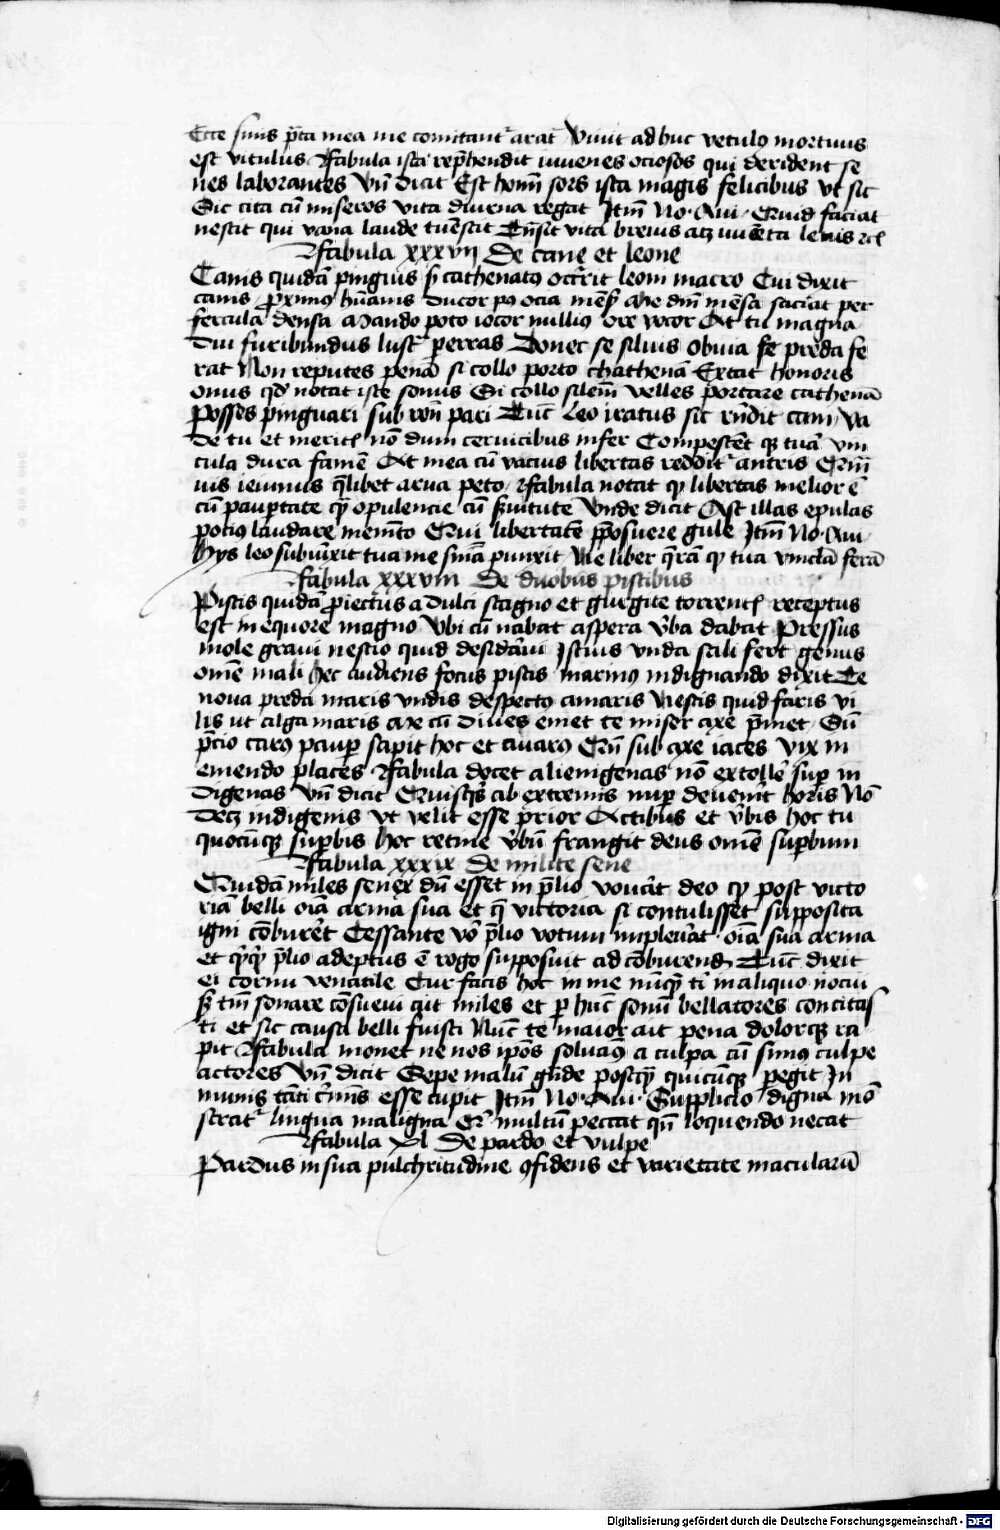 Ecce simis p̄ta mea me comitant᷑ arat᷑ Vivit adhuc vetulꝰ mortuus
est vitulus · Fabula ista rep̄hendit iuvenes ociosos qui derident se
nes laborantes Vn̄ dicit Est homī sors ista magis felicibus vt sit
Sic cita cū miseros vita diurna regat Itm̄ No · Aui · Quid faciat
nescit qui vana laude tuescit
Fabula xxxvij De cane et leone
Canis quidā pinguis ꝫ cathenatꝰ occ̄rit leoni macro Cui dixit
canis · ꝓximꝰ hūanis ducor
fercula densa Mando poto iocor nulliꝰ ore vocor At tu magna
diu furibundus lustr̄ ꝑerras Donec se siluis obvia fe p̄da fe
rat Non reputes penā si collo porto chathenā Extat honoris
onus qd̕ notat iste sonus Si collo silem̄ velles portare cathenā
Posses pinguari sub rōn pari Tūc Leo iratus sic rn̄dit cani / va
de tu et nō dum cervicibus infer Compescēt qꝫ tuā vin
cula dura famē At mea cū vacuus libertas reddit᷑ antris
uis ieiunus q̄libet arva peto / Fabula notat ꝙ libertas melior ē
cū paupertate qꝫ̄ opulencie cū ẜuitute Vnde dicit Ast illas epulas
potiꝰ laudare mem̄to Qui libertatē p̄posuere gule Itm̄ No · Aui /
Hijs leo subiūxit tua me sn̄ia punxit Me liber q̄ram ꝙ tua vincla ferā
Fabula xxxviij De duobus piscibus
Piscis quidā ꝓiectus a dulci stagno et gurgite torrent᷑ receptus
est in equore magno Vbi cū nabat aspera v̄ba dabat Pressus
mole gravi nescio quid desid̕avi Istius vnda sali fert genus
omē mali Hec audiens focus piscis marinꝰ indignando dixit Te
nova preda maris vndis despectꝰ amaris Nescis quid faris vi
lis ut alga maris axe cū dives emet te miser axe p̄met · Sū
p̄cio carꝰ paup̄ sapit hoc et avarꝰ Qn̄ sub axe iaces vix in
emendo places Fabula docet alienigenas nō extoll̕e suꝑ in
digenas Vn̄ dicit Quisqꝫ̄ ab extremis nuꝑ deven̄it horis Nō
decꝫ indigenis vt velit esse prior Actibus et v̄bis hoc tu
quocūqꝫ suꝑbis hoc retine v̄bū frangit deus omē suꝑbum
Fabula xxxix De milite sene
Quidā miles senex dū esset in p̄lio vovāt deo ꝙ post victo
riā belli oīa arma sua et q̄ victoria si contulisset supposita
igni cōbur̕et Cessante v̕o p̄lio votum implev̕at · oīa sua arma
et p̄lio adeptus ē rogo supposuit ad cōburend̄ Tūc dixit
ei cornu venatile Cur facis hoc in me nūqꝫ̄ t̄i in aliquo nocui
ẜ tm̄ sonare cōsuevi ait miles et ꝑ hūc sonū bellatores concitas
ti et sic causa belli fuisti Nūc te maior ait pena dolorqꝫ ra
pit Fabula monet ne nos ip̄os solvaꝰ a culpa cū simꝰ culpe
actores Vn̄ dicit Sepe malū gn̄de postqꝫ̄ quicūqꝫ pegit In
munis tāti c̄mīs esse cupit Itm̄ No · Aui · Supplicio digna mō
strat᷑ lingua maligna Q᷑ multū peccat qn̄ loquendo necat
Fabula xl De pardo et vulpe
Pardus in sua pulchritudine ꝯfidens et varietate macularū
Digitalisierung gefördert durch die Deutsche Forschungsgemeinschaft - DFG